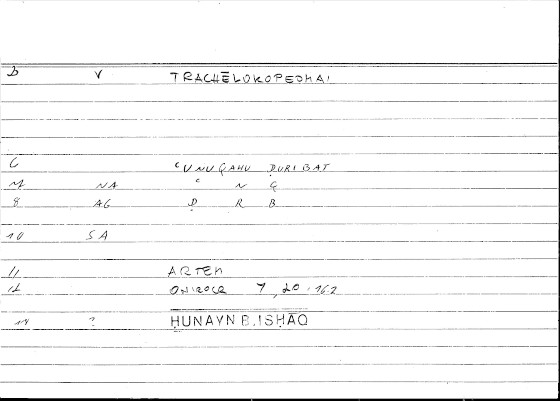 D V TRACHĒLOKOPEOMAI
6 ʿUNUQAHU ḌURIBAT
7 NA ʿ N Q
8 AG Ḍ R B
10 SA
11 ARTEM
12 ONIROCR 7,20.162
14 ? ḤUNAYN B. ISḤĀQ